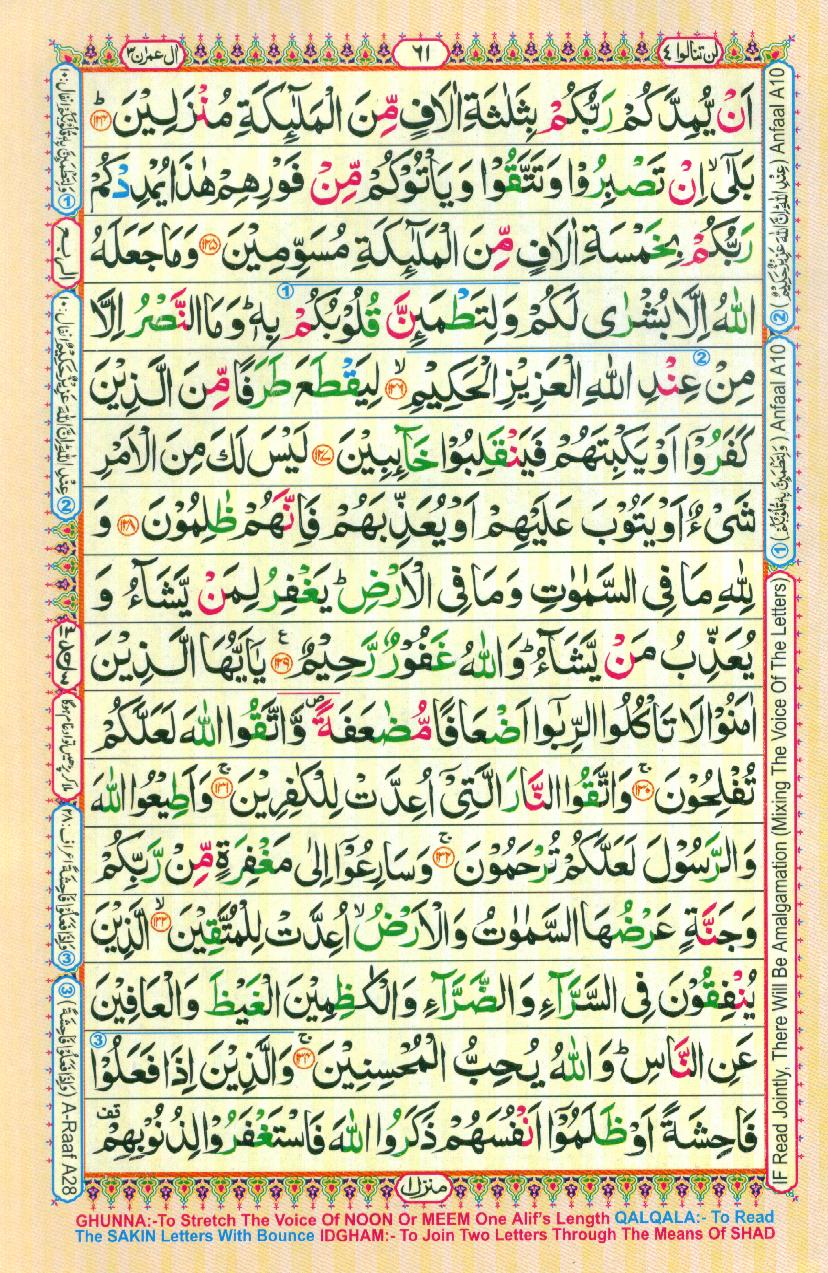 لن تنالوا ٤
٦١
ال عمرٰن ٣
اَنْ يُّمِدَّكُمْ رَبُّكُمْ بِثَلٰثَةِ اٰلَافٍ مِّنَ الْمَلٰٓئِكَةِ مُنْزَلِيْنَ ؕ۝۱۲۴
بَلٰٓى ۙ اِنْ تَصْبِرُوْا وَتَتَّقُوْا وَيَاْتُوْكُمْ مِّنْ فَوْرِهِمْ هٰذَا يُمْدِدْكُمْ
رَبُّكُمْ بِخَمْسَةِ اٰلَافٍ مِّنَ الْمَلٰٓئِكَةِ مُسَوِّمِيْنَ ۝۱۲۵ وَمَا جَعَلَهُ
اللّٰهُ اِلَّا بُشْرٰى لَكُمْ وَلِتَطْمَئِنَّ قُلُوْبُكُمْ بِهٖ ؕ وَمَا النَّصْرُ اِلَّا
مِنْ عِنْدِ اللّٰهِ الْعَزِيْزِ الْحَكِيْمِ ۙ۝۱۲۶ لِيَقْطَعَ طَرَفًا مِّنَ الَّذِيْنَ
كَفَرُوْٓا اَوْ يَكْبِتَهُمْ فَيَنْقَلِبُوْا خَآئِبِيْنَ ۝۱۲۷ لَيْسَ لَكَ مِنَ الْاَمْرِ
شَىْءٌ اَوْ يَتُوْبَ عَلَيْهِمْ اَوْ يُعَذِّبَهُمْ فَاِنَّهُمْ ظٰلِمُوْنَ ۝۱۲۸ وَ
لِلّٰهِ مَا فِى السَّمٰوٰتِ وَمَا فِى الْاَرْضِ ؕ يَغْفِرُ لِمَنْ يَّشَآءُ وَ
يُعَذِّبُ مَنْ يَّشَآءُ ؕ وَاللّٰهُ غَفُوْرٌ رَّحِيْمٌ ۝۱۲۹ ع يٰٓاَيُّهَا الَّذِيْنَ
اٰمَنُوْا لَا تَاْكُلُوا الرِّبٰٓوا اَضْعَافًا مُّضٰعَفَةً ۪ وَّاتَّقُوا اللّٰهَ لَعَلَّكُمْ
تُفْلِحُوْنَ ۚ۝۱۳۰ وَاتَّقُوا النَّارَ الَّتِىْٓ اُعِدَّتْ لِلْكٰفِرِيْنَ ۚ۝۱۳۱ وَاَطِيْعُوا اللّٰهَ
وَالرَّسُوْلَ لَعَلَّكُمْ تُرْحَمُوْنَ ۚ۝۱۳۲ وَسَارِعُوْٓا اِلٰى مَغْفِرَةٍ مِّنْ رَّبِّكُمْ
وَجَنَّةٍ عَرْضُهَا السَّمٰوٰتُ وَالْاَرْضُ ۙ اُعِدَّتْ لِلْمُتَّقِيْنَ ۙ۝۱۳۳ الَّذِيْنَ
يُنْفِقُوْنَ فِى السَّرَّآءِ وَالضَّرَّآءِ وَالْكٰظِمِيْنَ الْغَيْظَ وَالْعَافِيْنَ
عَنِ النَّاسِ ؕ وَاللّٰهُ يُحِبُّ الْمُحْسِنِيْنَ ۚ۝۱۳۴ وَالَّذِيْنَ اِذَا فَعَلُوْا
فَاحِشَةً اَوْ ظَلَمُوْٓا اَنْفُسَهُمْ ذَكَرُوا اللّٰهَ فَاسْتَغْفَرُوْا لِذُنُوْبِهِمْ قف
② (عِنْدِ اللّٰهِ اِنَّ اللّٰهَ عَزِيْزٌ حَكِيْمٌ) Anfaal A10
① (وَلِتَطْمَئِنَّ بِهٖ قُلُوْبُكُمْ) Anfaal A10
IF Read Jointly, There Will Be Amalgamation (Mixing The Voice Of The Letters)
① وَلِتَطْمَئِنَّ بِهٖ قُلُوْبُكُمْ انفال: ۱۰
② عِنْدِ اللّٰهِ اِنَّ اللّٰهَ عَزِيْزٌ حَكِيْمٌ انفال: ۱۰
ملا کر پڑھیں تو ادغام ہوگا
③ وَاِذَا فَعَلُوْا فَاحِشَةً اعراف: ۲۸
③ (وَاِذَا فَعَلُوْا فَاحِشَةً) A-Raaf A28
منزل ١
GHUNNA:-To Stretch The Voice Of NOON Or MEEM One Alif's Length QALQALA:- To Read
The SAKIN Letters With Bounce IDGHAM:- To Join Two Letters Through The Means Of SHAD